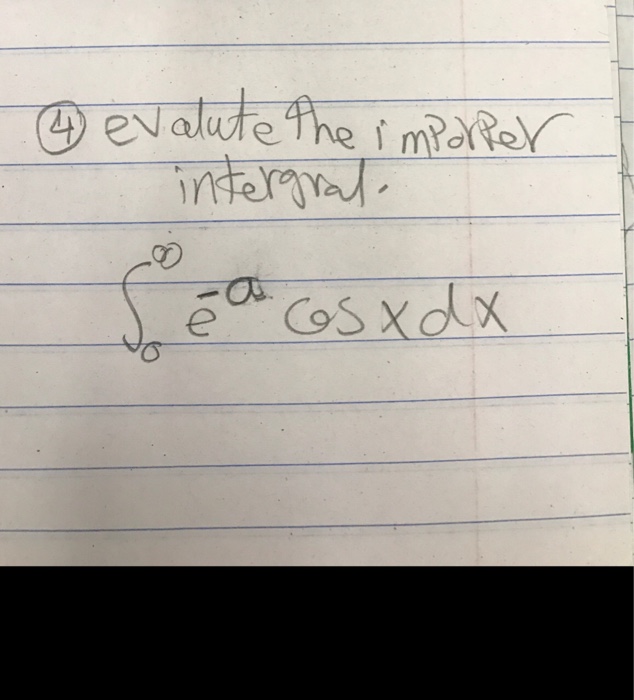 ④ evalute the imporper
intergral.
∫₀^∞ e^-a cos x dx